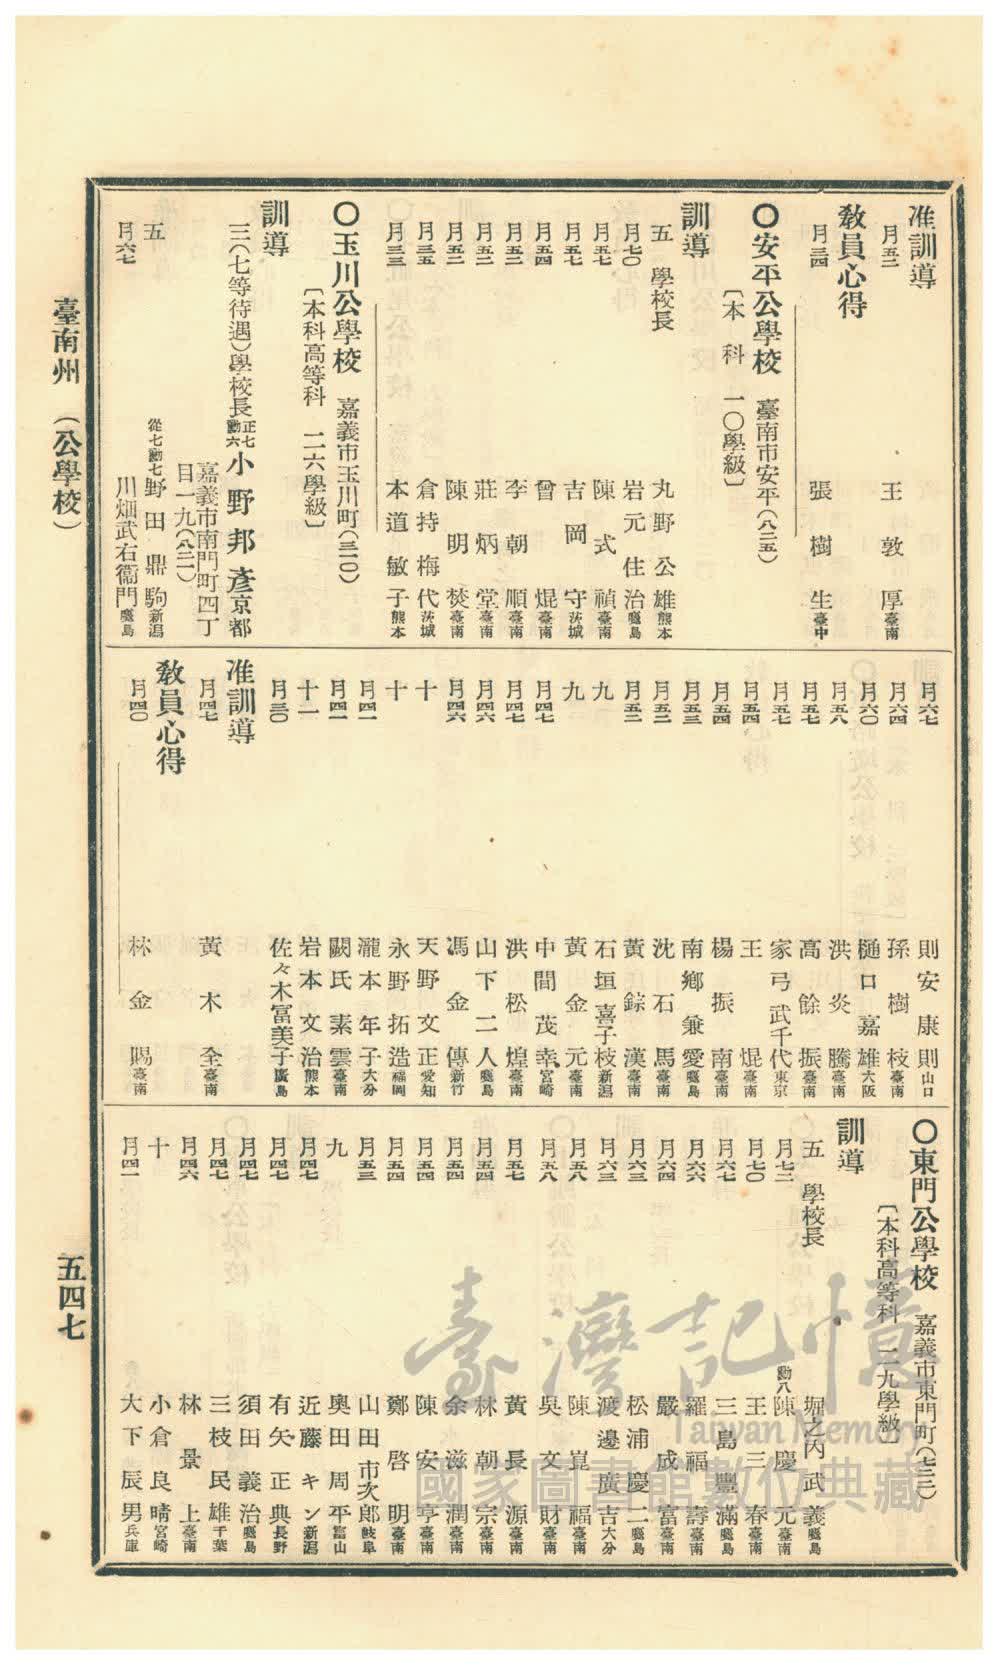 准訓導
月五二 王敦厚 臺南
教員心得
月三四 張樹生 臺中
〇安平公學校 臺南市安平(八二五)
〔本科 一〇學級〕
訓導
五 學校長 丸野公雄 熊本
月七〇 岩元住治 鹿島
月五七 陳式禎 臺南
月五七 吉岡守 茨城
月五四 曾焜 臺南
月五二 李朝順 臺南
月五二 莊炳堂 臺南
月五二 陳明焚 臺南
月三五 倉持梅代 茨城
月三三 本道敏子 熊本
〇玉川公學校 嘉義市玉川町(三二〇)
〔本科高等科 二六學級〕
訓導
三(七等待遇)學校長 正七勳六 小野邦彥 京都
嘉義市南門町四丁
目一九(八二一)
五 從七勳七 野田鼎駒 新潟
月六七 川畑武右衞門 鹿島
月六七 則安康則 山口
月六四 孫樹枝 臺南
月六〇 樋口嘉雄 大阪
月五八 洪炎騰 臺南
月五七 高餘振 臺南
月五七 家弓武千代 東京
月五四 王焜 臺南
月五四 楊振南 臺南
月五三 南鄉兼愛 鹿島
月五二 沈石馬 臺南
月五二 黃錝漢 臺南
九 石垣喜子枝 新潟
九 黃金元 臺南
月四七 中間茂幸 宮崎
月四七 洪松煌 臺南
月四六 山下二人 鹿島
月四六 馮金傳 新竹
十 天野文正 愛知
十 永野拓造 福岡
月四一 瀧本年子 大分
月四一 闕氏素雲 臺南
十一 岩本文治 熊本
月三〇 佐々木富美子 廣島
准訓導
月四七 黃木全 臺南
教員心得
月四〇 林金賜 臺南
〇東門公學校 嘉義市東門町(七三三)
〔本科高等科 二九學級〕
訓導
五 學校長 堀之內武義 鹿島
月七二 勳八 陳慶元 臺南
月七〇 王三春 臺南
月六七 三島豐滿 鹿島
月六六 羅福壽 臺南
月六四 嚴成富 臺南
月六三 松浦慶二 鹿島
月六三 渡邊廣吉 大分
月五八 陳崑福 臺南
月五八 吳文財 臺南
月五七 黃長源 臺南
月五四 林朝宗 臺南
月五四 余滋潤 臺南
月五四 陳安亨 臺南
月五四 鄭啓明 臺南
月五三 山田市次郎 岐阜
九 奧田周平 富山
月四七 近藤キン 新潟
月四七 有矢正典 長野
月四七 須田義治 鹿島
月四七 三枝民雄 千葉
月四六 林景上 臺南
十 小倉良晴 宮崎
月四一 大下辰男 兵庫
臺南州 (公學校)
五四七
臺灣記憶
Taiwan Memory
國家圖書館數位典藏